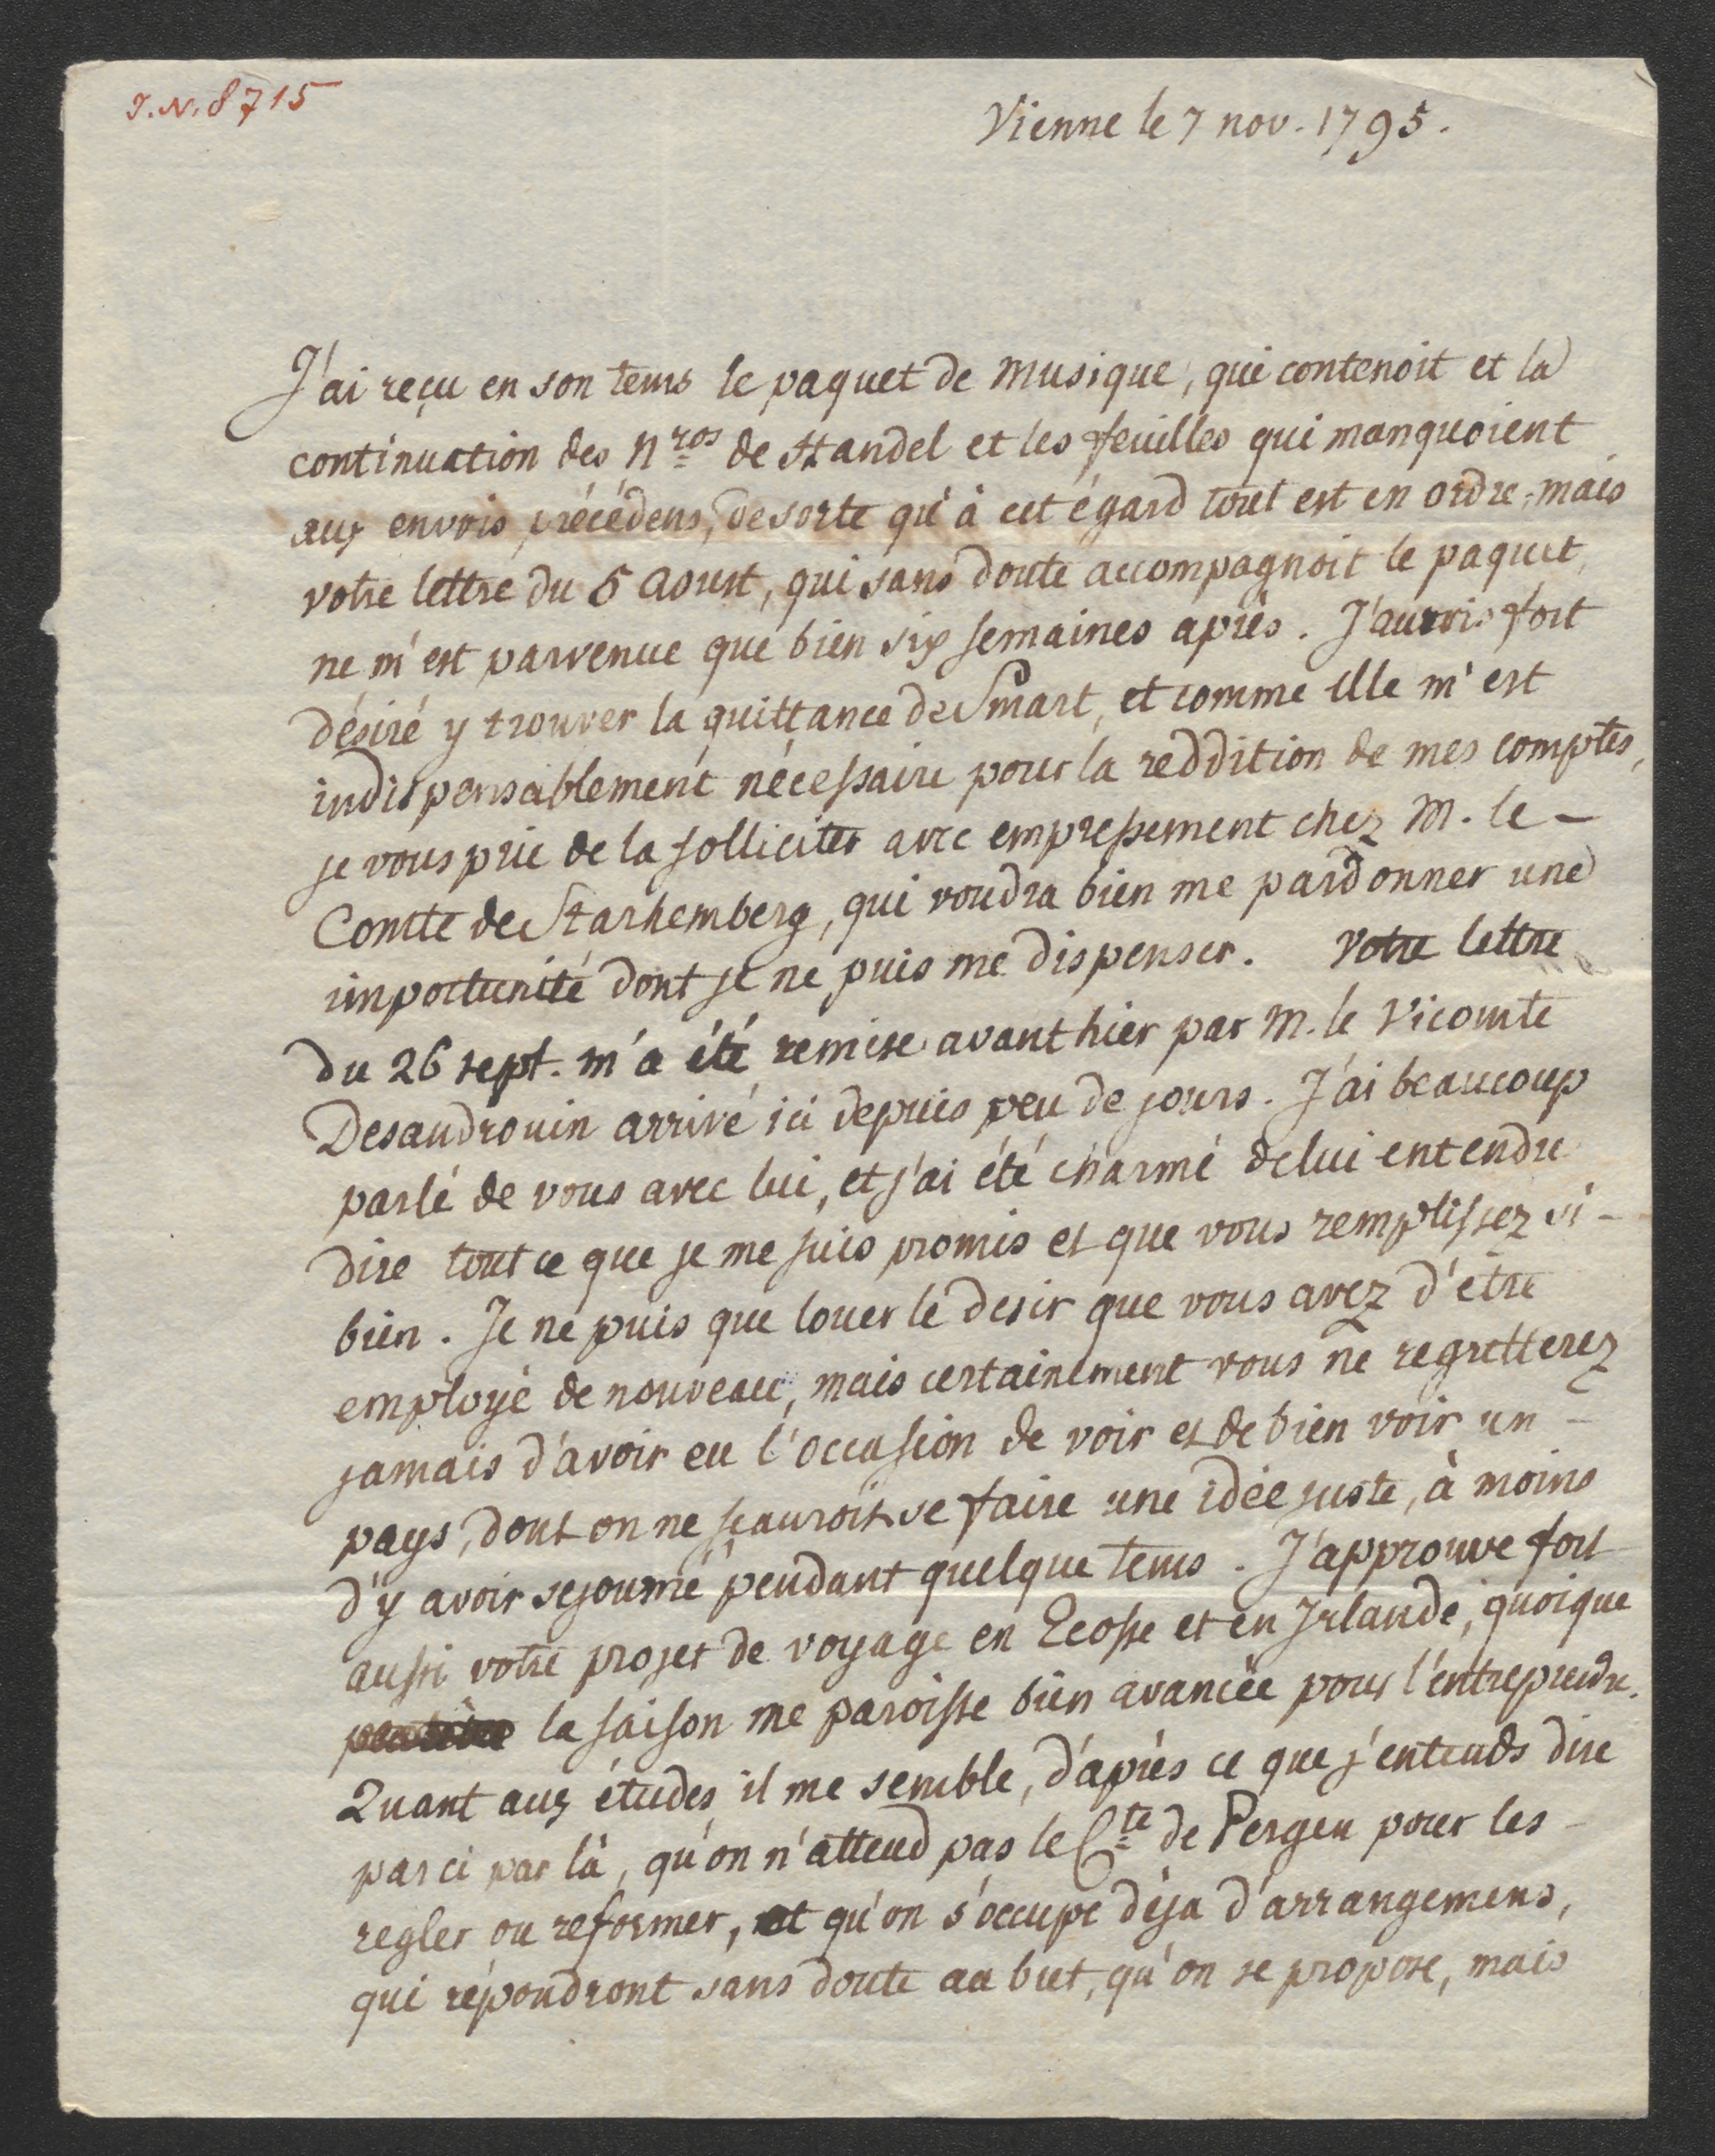 J.N. 8715
Vienne le 7 nov. 1795.
J'ai reçu en son tems le paquet de musique, qui contenoit et la
continuation des Nros de Handel et les feuilles qui manquoient
aux envois précédens, desorte qu'à cet égard tout est en ordre, mais
votre lettre du 5 Aoust, qui sans doute accompagnoit le paquet,
ne m'est parvenue que bien six semaines après. J'aurois fort
désiré y trouver la quittance de Smart, et comme elle m'est
indispensablement nécessaire pour la reddition de mes comptes,
je vous prie de la solliciter avec empressement chez M. le -
Comte de Starhemberg, qui voudra bien me pardonner une
importunité dont je ne puis me dispenser. Votre lettre
du 26 sept. m'a été remise avanthier par M. le Vicomte
Desandrouin arrivé ici depuis peu de jours. J'ai beaucoup
parlé de vous avec lui, et j'ai été charmé de lui entendre
dire tout ce que je me suis promis et que vous remplissez si -
bien. Je ne puis que louer le desir que vous avez d'être
employé de nouveau, mais certainement vous ne regretterez
jamais d'avoir eu l'occasion de voir et de bien voir un -
pays, dont on ne sçauroit se faire une idée juste, à moins
d'y avoir sejourné pendant quelque tems. J'approuve fort
aussi votre projet de voyage en Ecosse et en Irlande, quoique
la saison me paroisse bien avancée pour l'entreprendre.
Quant aux études il me semble, d'après ce que j'entends dire
par ci par là, qu'on n'attend pas le Cte de Pergen pour les -
regler ou reformer, et qu'on s'occupe déja d'arrangemens,
qui répondront sans doute au but, qu'on se propose, mais